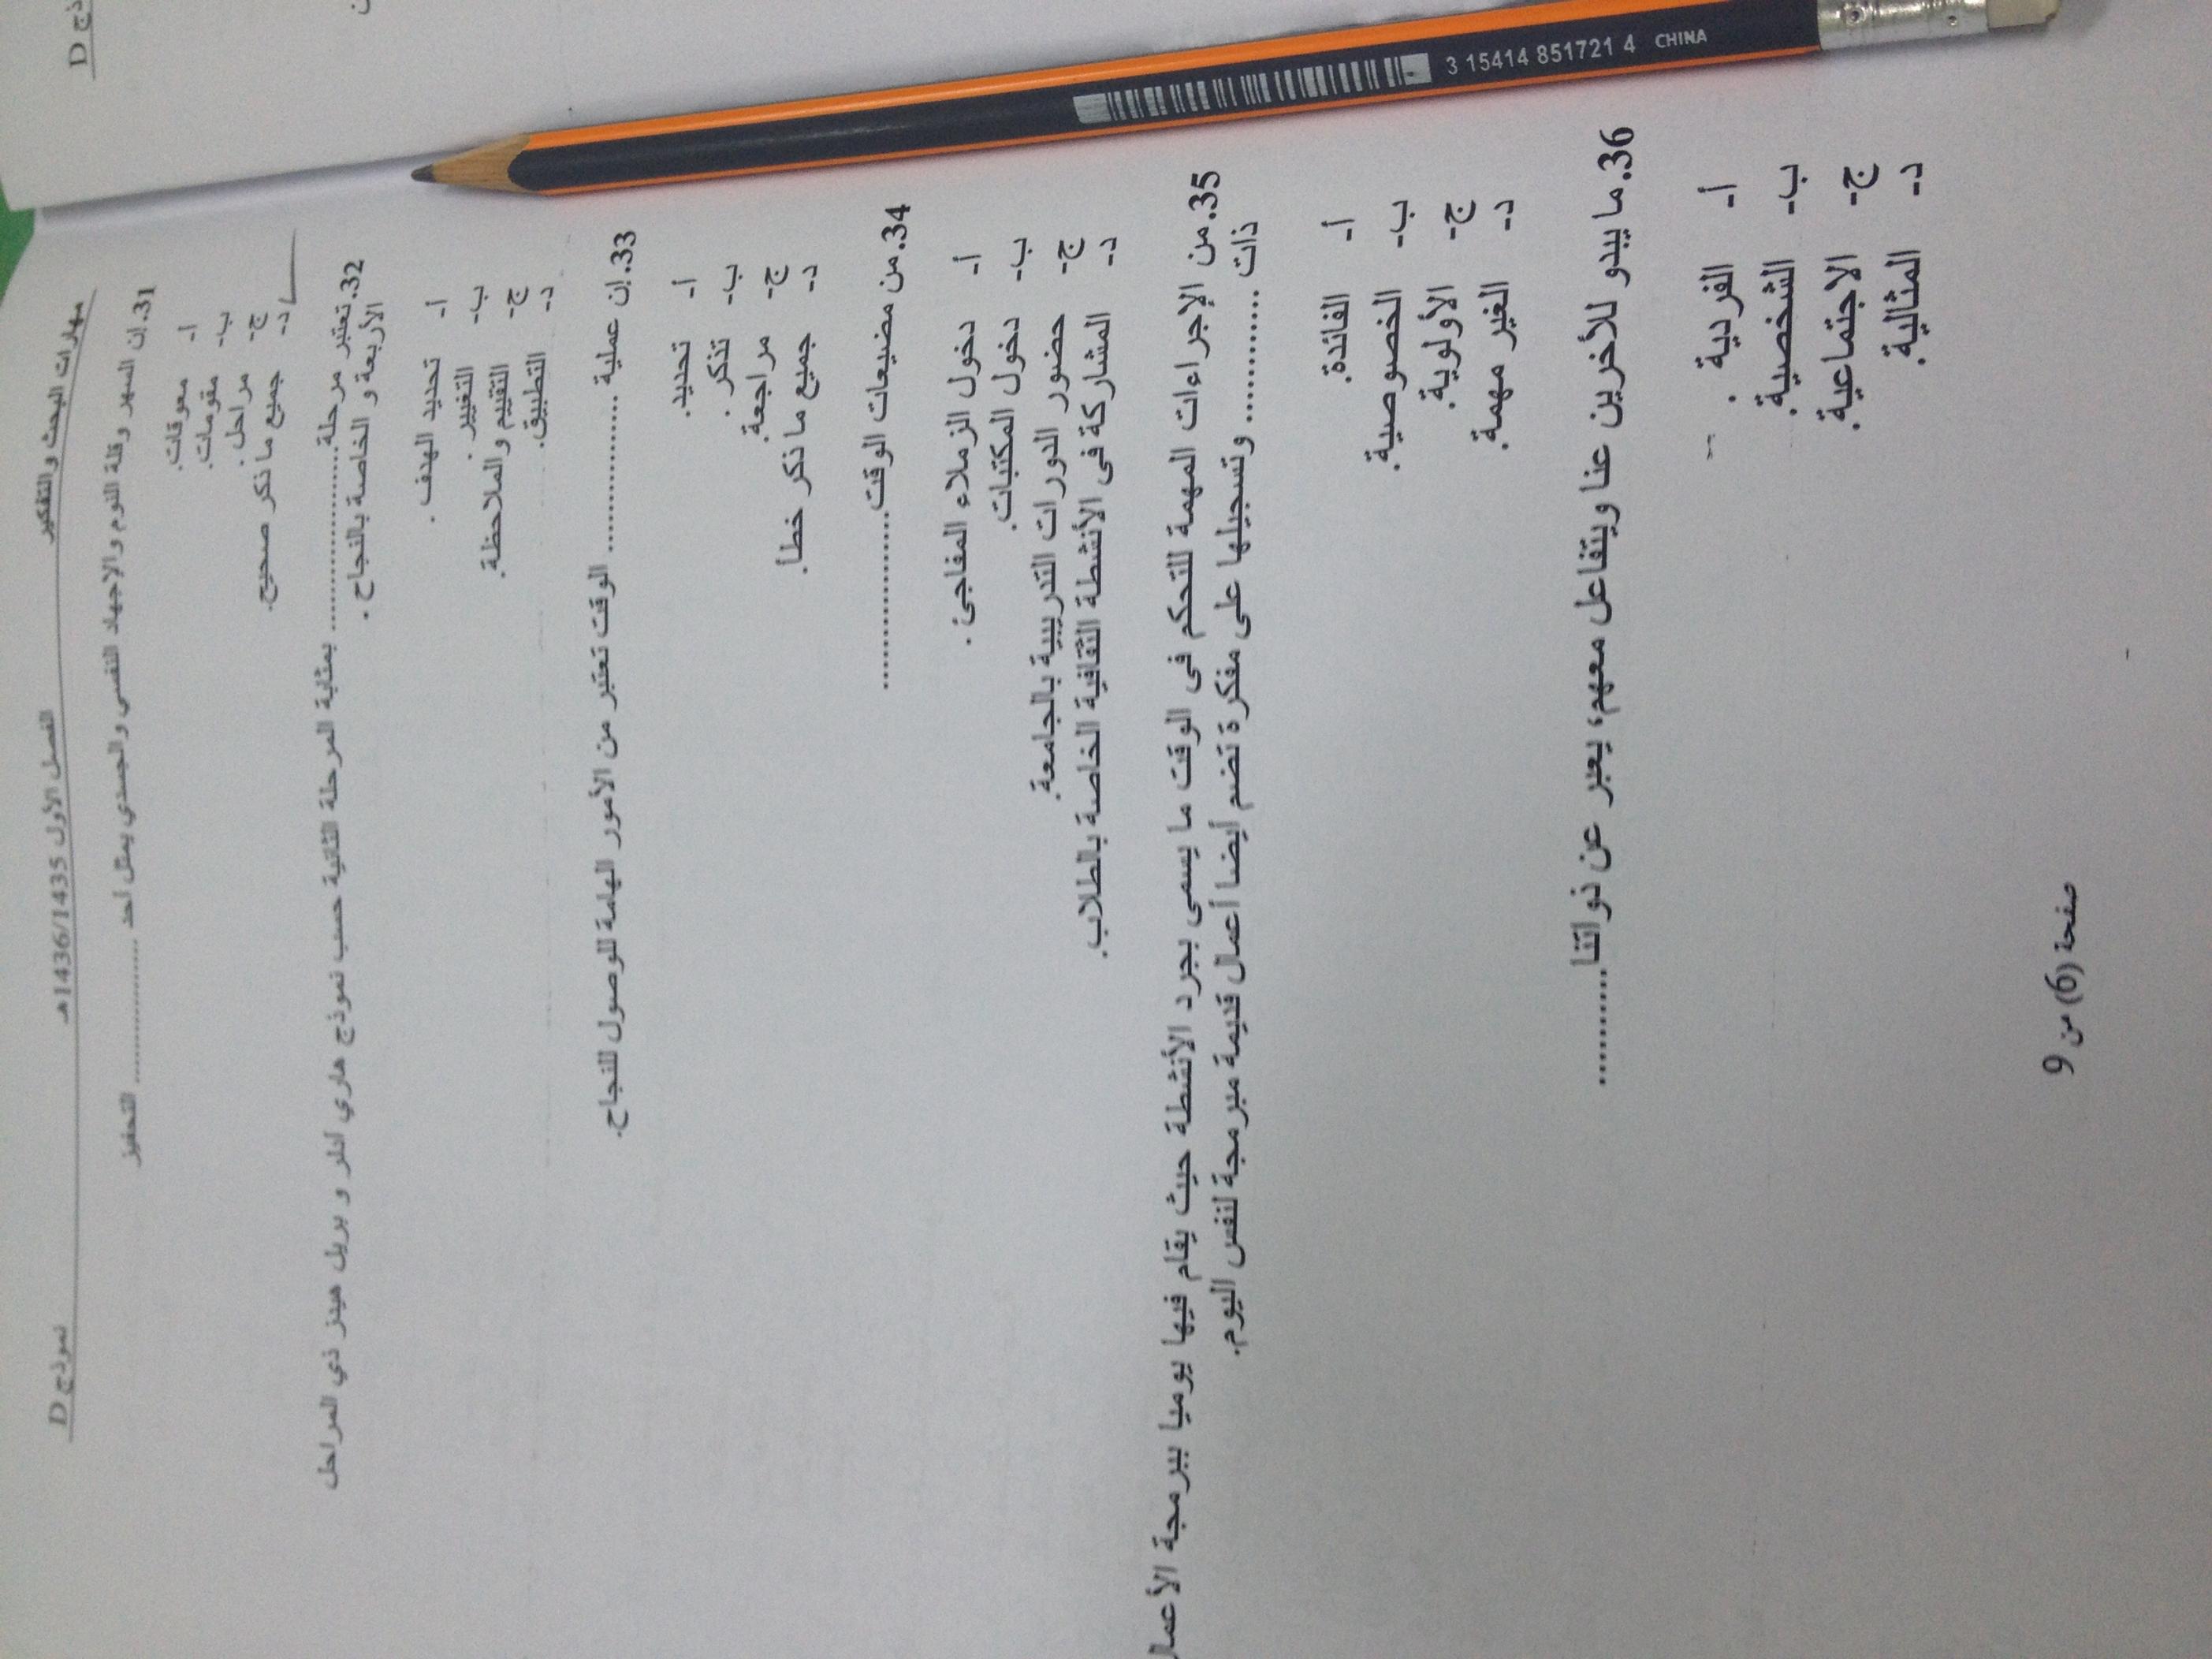 مهارات البحث والتفكير الفصل الأول 1436/1435هـ نموذج D
31. إن السهر وقلة النوم والإجهاد النفسي والجسدي يمثل أحد .................... التحفيز
أ- معوقات.
ب- مقومات.
ج- مراحل .
د- جميع ما ذكر صحيح.
32. تعتبر مرحلة.................... بمثابة المرحلة الثانية حسب نموذج هاري ألدر و بريل هيندز ذي المراحل
الأربعة و الخاصة بالنجاح .
أ- تحديد الهدف .
ب- التغيير .
ج- التقييم والملاحظة.
د- التطبيق.
33. إن عملية .................... الوقت تعتبر من الأمور الهامة للوصول للنجاح.
أ- تحديد.
ب- تذكر .
ج- مراجعة.
د- جميع ما ذكر خطأ.
34. من مضيعات الوقت....................
أ- دخول الزملاء المفاجئ .
ب- دخول المكتبات.
ج- حضور الدورات التدريبية بالجامعة.
د- المشاركة فى الأنشطة الثقافية الخاصة بالطلاب.
35. من الإجراءات المهمة للتحكم فى الوقت ما يسمى بجرد الأنشطة حيث يقام فيها يوميا ببرمجة الأعمال
ذات .................... وتسجيلها على مفكرة تضم أيضا أعمال قديمة مبرمجة لنفس اليوم.
أ- الفائدة.
ب- الخصوصية.
ج- الأولوية.
د- الغير مهمة.
36. ما يبدو للأخرين عنا ويتفاعل معهم، يعبر عن ذواتنا............
أ- الفردية .
ب- الشخصية.
ج- الاجتماعية.
د- المثالية.
صفحة (6) من 9
3 15414 851721 4 CHINA